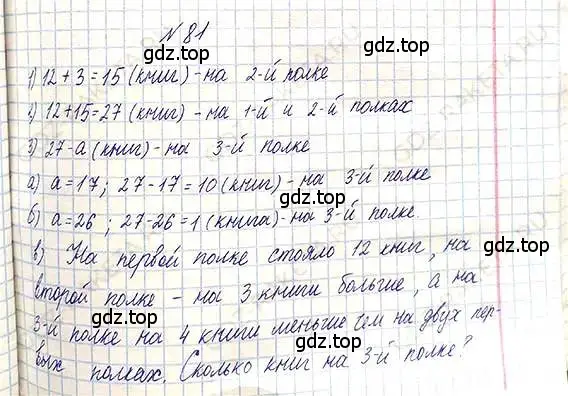 N 81
gdz.top
1) 12 + 3 = 15 (книг) - на 2-й полке
gdz.top
2) 12+15=27 (книг) - на 1-й и 2-й полках
3) 27-а (книг) - на 3-й полке
gdz.top
а) а = 17; 27-17=10 (книг) - на 3-й полке
gdz.top
б) а=26; 27-26=1 (книга) - на 3-й полке.
в) На первой полке стояло 12 книг, на
gdz.top
второй полке - на 3 книги больше, а на
gdz.top
3-й полке на 4 книги меньше чем на двух пер-
вых полках. Сколько книг на 3-й полке?
gdz.top